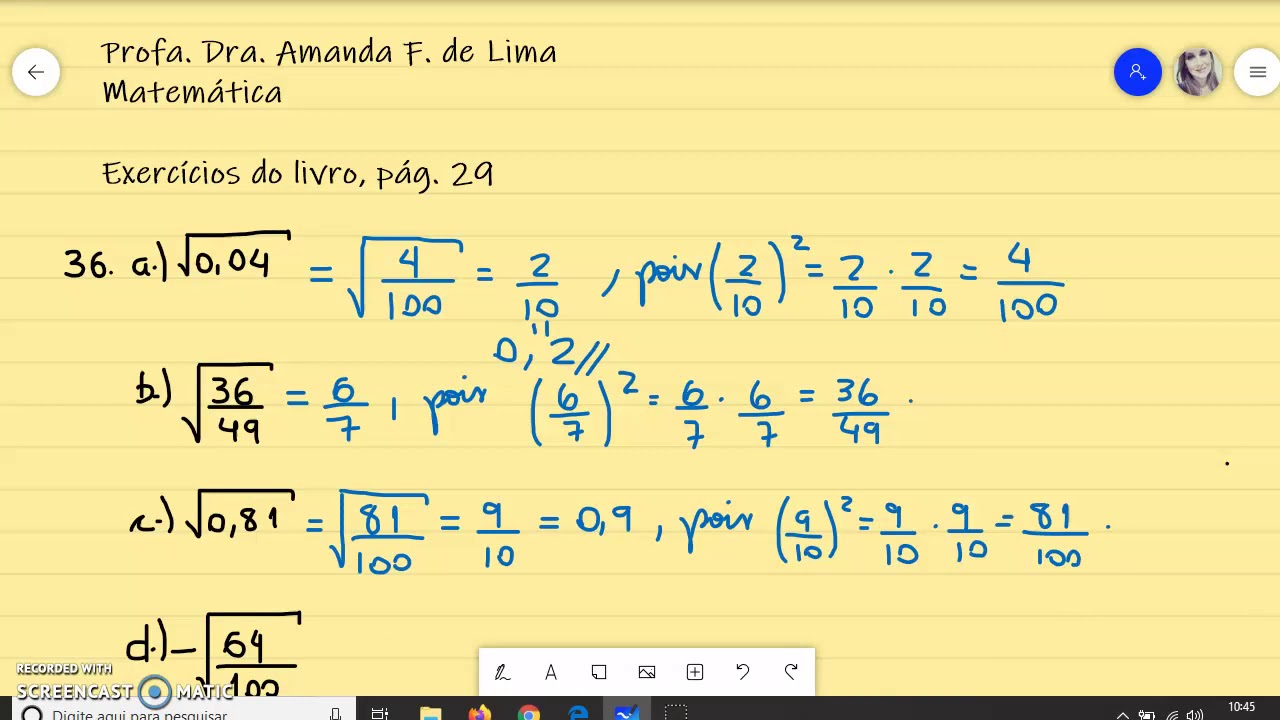 Profa. Dra. Amanda F. de Lima
Matemática
Exercícios do livro, pág. 29
36. a.) √0,04 = √(4/100) = 2/10 , pois (2/10)² = 2/10 · 2/10 = 4/100
"
0,2//
b.) √(36/49) = 6/7 , pois (6/7)² = 6/7 · 6/7 = 36/49 .
c.) √0,81 = √(81/100) = 9/10 = 0,9 , pois (9/10)² = 9/10 · 9/10 = 81/100 .
d.) –√(64/100)
RECORDED WITH
SCREENCAST MATIC
A
Digite aqui para pesquisar
10:45